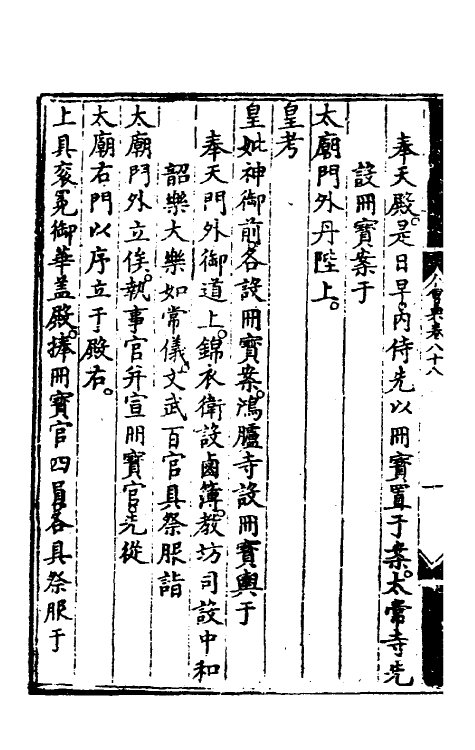 奉天殿。是日早。內侍先以冊寶置于案。太常寺先
設冊寶案于
太廟門外丹陛上。
皇考
皇妣神御前。各設冊寶案。鴻臚寺設冊寶輿于
奉天門外御道上。錦衣衛設鹵簿。教坊司設中和
韶樂大樂如常儀。文武百官具祭服詣
太廟門外立俟。執事官并宣冊寶官。先從
太廟右門以序立于殿右。
上具袞冕御華蓋殿。捧冊寶官四員。各具祭服于
會典卷八十八
一